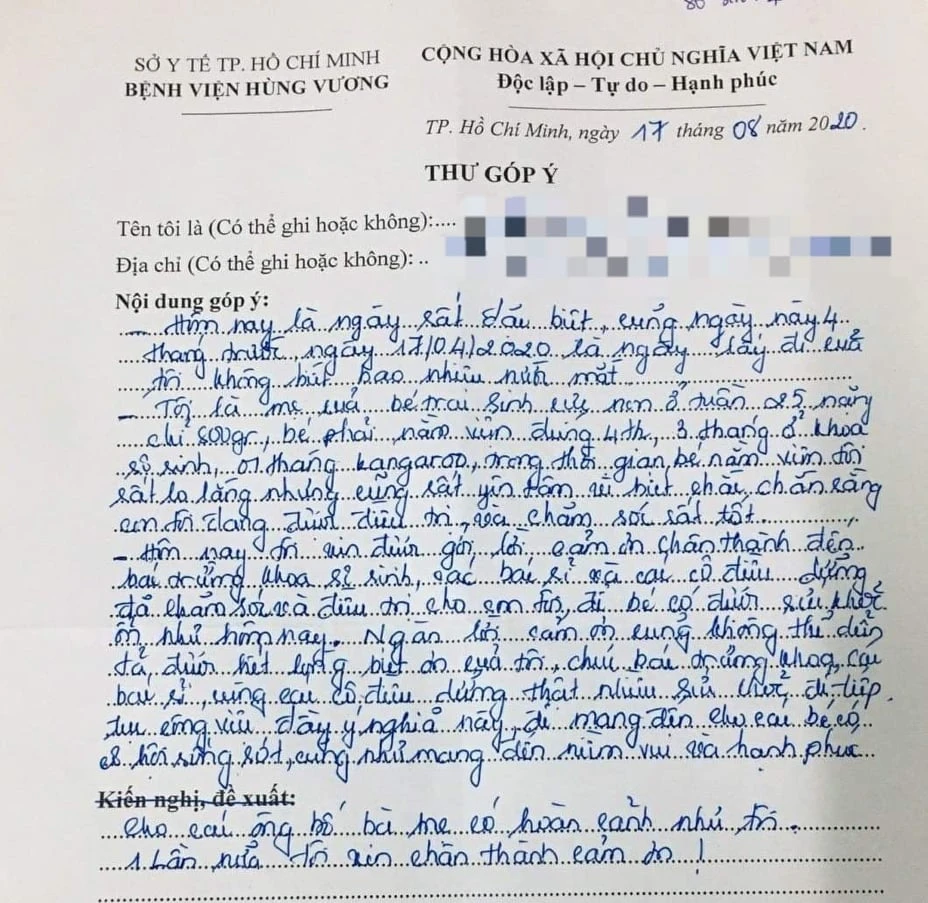 SỞ Y TẾ TP. HỒ CHÍ MINH
BỆNH VIỆN HÙNG VƯƠNG
CỘNG HÒA XÃ HỘI CHỦ NGHĨA VIỆT NAM
Độc lập – Tự do – Hạnh phúc
TP. Hồ Chí Minh, ngày 17 tháng 08 năm 2020.
THƯ GÓP Ý
Tên tôi là (Có thể ghi hoặc không):....
Địa chỉ (Có thể ghi hoặc không): ..
Nội dung góp ý:
– Hôm nay là ngày rất đấu biệt, cũng ngày này 4
tháng trước, ngày 17/04/2020 là ngày lấy đi cuả
tôi không biết bao nhiêu nước mắt
– Tôi là mẹ cuả bé trai sinh cực non ở tuần 25 nặng
chỉ 800gr, bé phải nằm viện đúng 4th, 3 tháng ở khoa
sơ sinh, 01 tháng kangaroo, trong thời gian bé nằm viện tôi
rất lo lắng nhưng cũng rất yên tâm vì biết chắc chắn rằng
em tôi đang được điều trị, và chăm sóc rất tốt
– Hôm nay tôi xin được gởi lời cảm ơn chân thành đến
bác trưởng khoa sơ sinh, các bác sỉ và các cô điều dưỡng
đả chăm sóc và điều trị cho em tôi, để bé có được sức khoẻ
ổn như hôm nay. Ngàn lời cảm ơn cung không thể diễn
tả được hết lòng biết ơn cuả tôi, chúc bác trưởng khoa, các
bác sỉ, cùng các cô điều dưỡng thật nhiều sức khoẻ để tiếp
tục công việc đầy ý nghiả này, để mang đến cho các bé có
cơ hội sống sót, cũng như mang đến niềm vui và hạnh phúc
Kiến nghị, đề xuất:
cho các ông bố bà mẹ có hoàn cảnh như tôi.
1 lần nưả tôi xin chân thành cảm ơn !